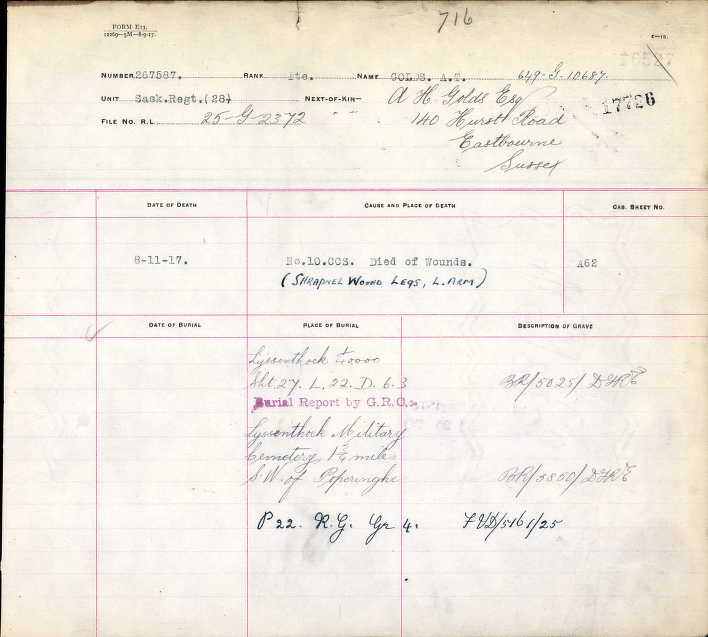 716
FORM E13.
12269—5M—8-9-17.
E—16.
16527
NUMBER 267587. RANK Pte. NAME GOLDS. A.T. 649-G-10687.
UNIT Sask.Regt.(28) NEXT-OF-KIN— A H. Golds Esq 17726
FILE NO. R.L. 25-G-2372 " " 140 Hurst Road
Eastbourne
Sussex
DATE OF DEATH CAUSE AND PLACE OF DEATH CAS. SHEET NO.
8-11-17. No.10.CCS. Died of Wounds. A62
(SHRAPNEL WOUND LEGS, L. ARM)
DATE OF BURIAL PLACE OF BURIAL DESCRIPTION OF GRAVE
Lyssenthock 1/40000
Sht 27. L. 22. D. 6. 3 BR/5025/DGRE
Burial Report by G.R.C.
Lyssenthock Military
Cemetery 1 3/4 miles
S.W. of Poperinghe BR/5850/DGRE
P 22. R.G. Gr 4. FVD/5161/25